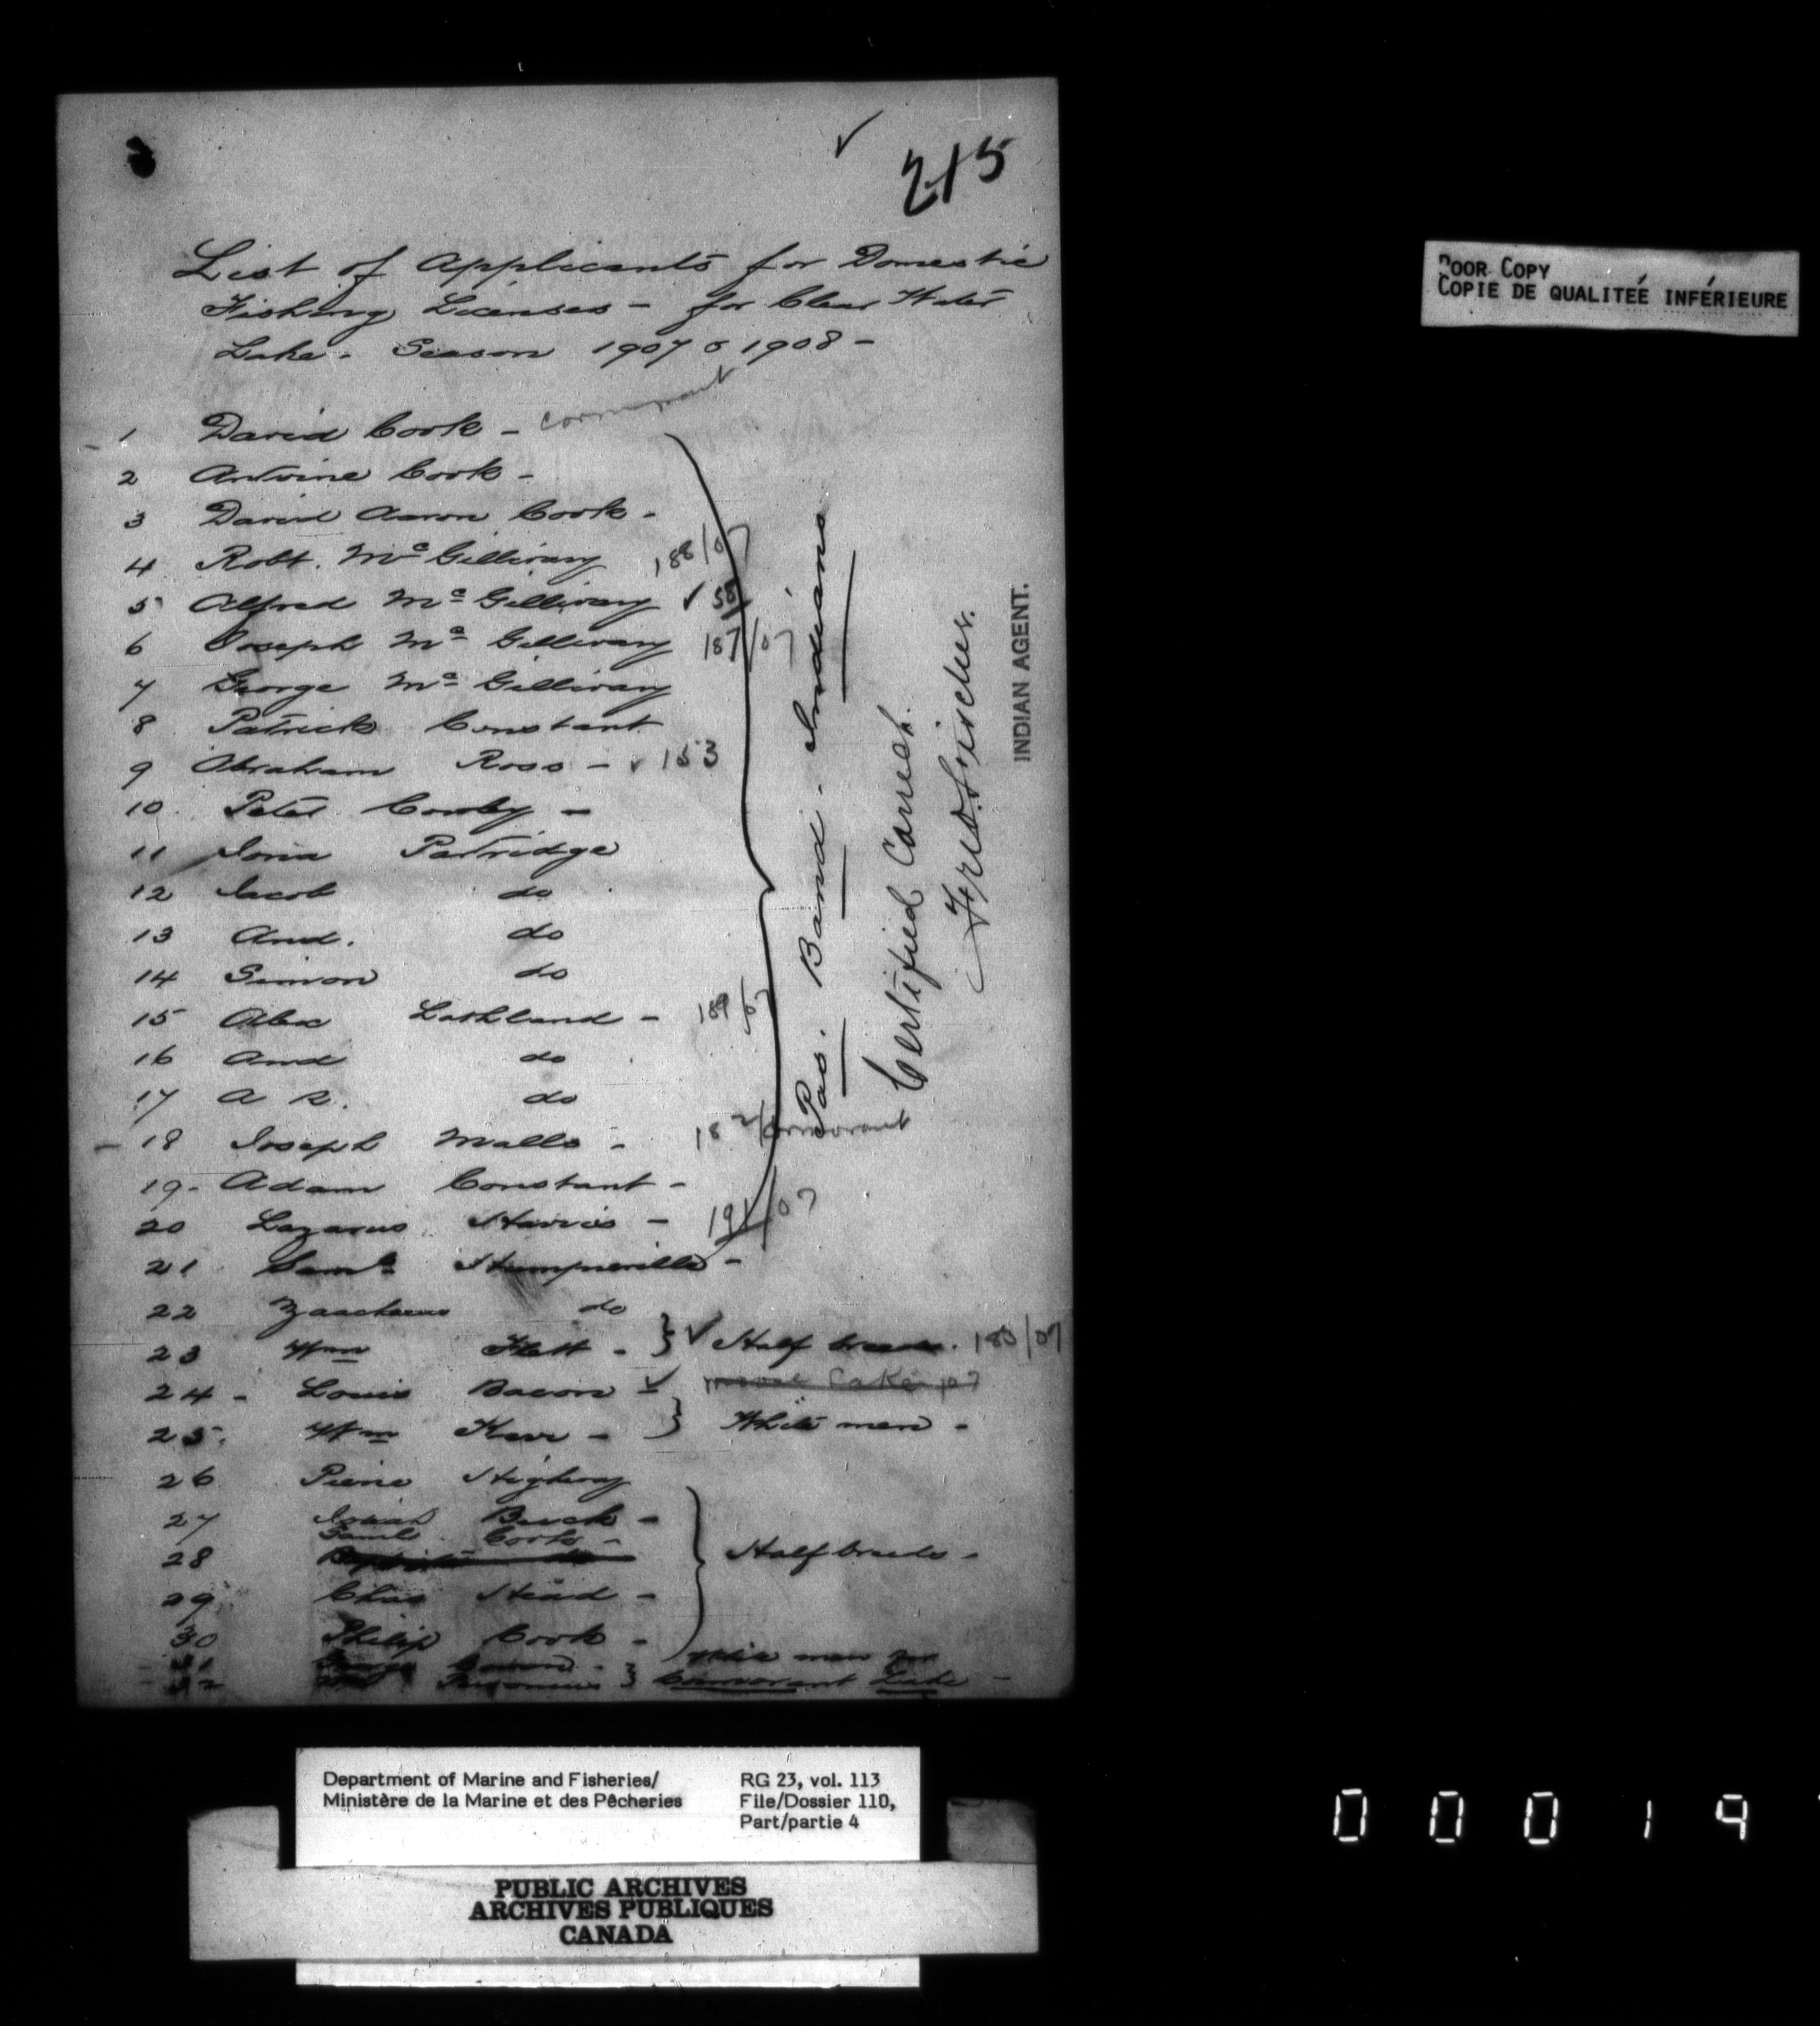 ✓
215
List of Applicants for Domestic
Fishing Licenses - for Clear Water
Lake - Season 1907 & 1908 -
1 David Cook - cormorant
2 Antoine Cook -
3 David Aaron Cook -
4 Robt. Mc Gillivary 188/07
5 Alfred Mc Gillivary ✓ 58
6 Joseph Mc Gillivary 187/07
7 George Mc Gillivary
8 Patrick Constant
9 Abraham Ross - ✓ 153
10 Peter -
11 Partridge
12 Jacob do
13 And. do
14 Simon do
15 Alex Lathland - 189/07
16 And do
17 A R. do
- 18 Joseph Malls - 18 cormorant
19 - Adam Constant -
20 Lazarus Harris - 191/07
21 Saml -
22 Zaacheus do
23 Wm Flett - } ✓ Half breeds. 07
24 - Louis Bacon - ✓ moose Lake 07
25. Wm Kerr - } White men -
26 Pierre Highway
27 Josiah Buck -
Saml Cook -
28
29 Chas Head -
30 Philip Cook -
Half breeds -
31 - White men for
32 } Cormorant Lake -
Pas. Band. Indians
Certified Correct.
Fred Fischer.
INDIAN AGENT.
POOR COPY
COPIE DE QUALITEÉ INFÉRIEURE
Department of Marine and Fisheries/
Ministère de la Marine et des Pêcheries
RG 23, vol. 113
File/Dossier 110,
Part/partie 4
PUBLIC ARCHIVES
ARCHIVES PUBLIQUES
CANADA
0 0 0 1 9